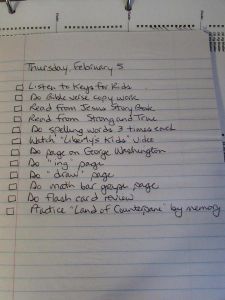 Thursday, February 5
Listen to Keys for Kids
Do Bible verse copy work
Read from Jesus Story Book
Read from Strong and True
Do spelling words 3 times each
Watch "Liberty's Kids" video
Do page on George Washington
Do "ing" page
Do "draw" page
Do math bar graph page
Do flash card review
Practice "Land of Counterpane" by memory